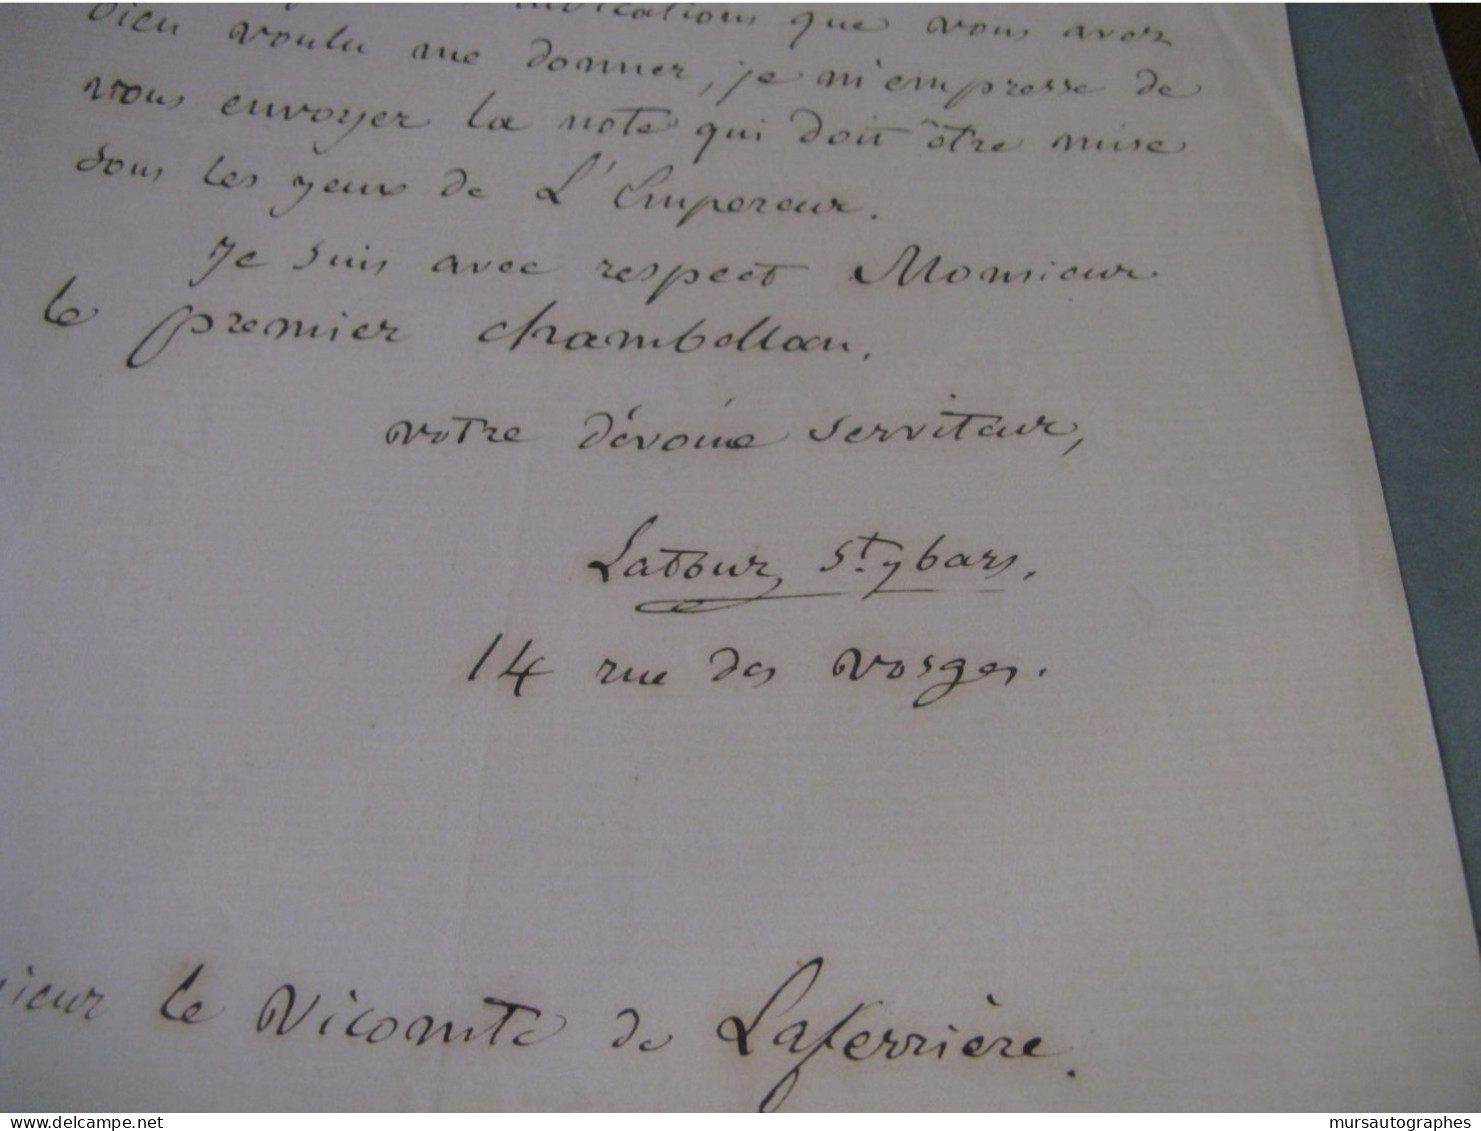 indications que vous avez
bien voulu me donner, je m'empresse de
vous envoyer la note qui doit être mise
sous les yeux de L'Empereur.
Je suis avec respect Monsieur
le premier chambellan.
votre dévoué serviteur,
Latour St. ybars.
14 rue des Vosges.
sieur le Vicomte de Laferrière.
delcampe.net
mursautographes